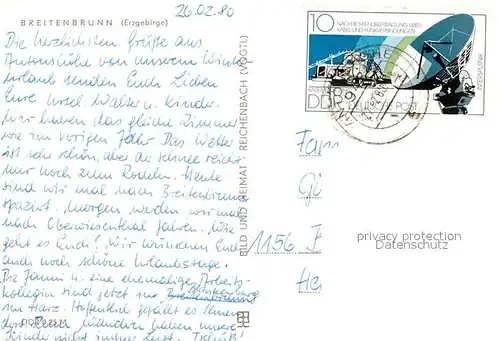 26.02.80
BREITENBRUNN (Erzgebirge)
Die herzlichsten Grüße aus
Antonshöhe von unserem Winter
urlaub senden Euch Lieben
Eure Ursel Walter u. Kinder.
Wir haben das gleiche Zimmer
wie im vorigen Jahr. Das Wetter
ist sehr schön, aber der Schnee reicht
nur noch zum Rodeln. Heute
sind wir mal nach Breitenbrunn
spaziert. Morgen werden wir mal
nach Oberwiesenthal fahren. Wie
geht es Euch? Wir wünschen Euch
auch noch schöne Urlaubstage.
Die Janni u. eine ehemalige Arbeits-
kollegin sind jetzt in
im Harz. Hoffentlich gefällt es
dort. haben unsere
Kinder nicht immer Lust. Tschüß!
BILD UND HEIMAT REICHENBACH (VOGTL)
10
NACHRICHTENÜBERTRAGUNG ÜBER
KABEL UND FUNKVERBINDUNGEN
DDR DEUTSCHE POST
INTERSPUTNIK
Fam
Gi
1156
He
privacy protection
Datenschutz